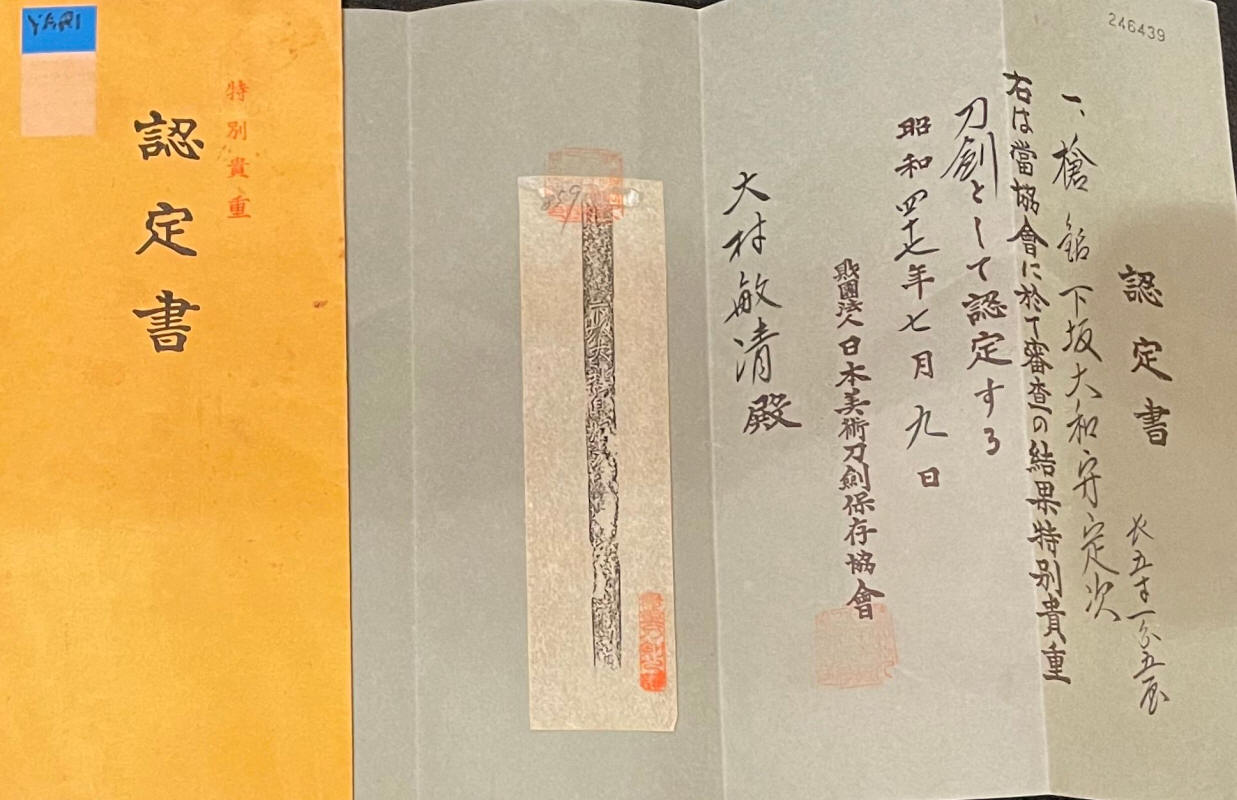 YARI
特別貴重
認定書
246439
認定書
一、槍 銘 下坂大和守定次
長五寸一分五厘
右は當協會に於て審査の結果特別貴重
刀劍として認定する
昭和四十七年七月九日
財團法人日本美術刀劍保存協會
大村敏清殿